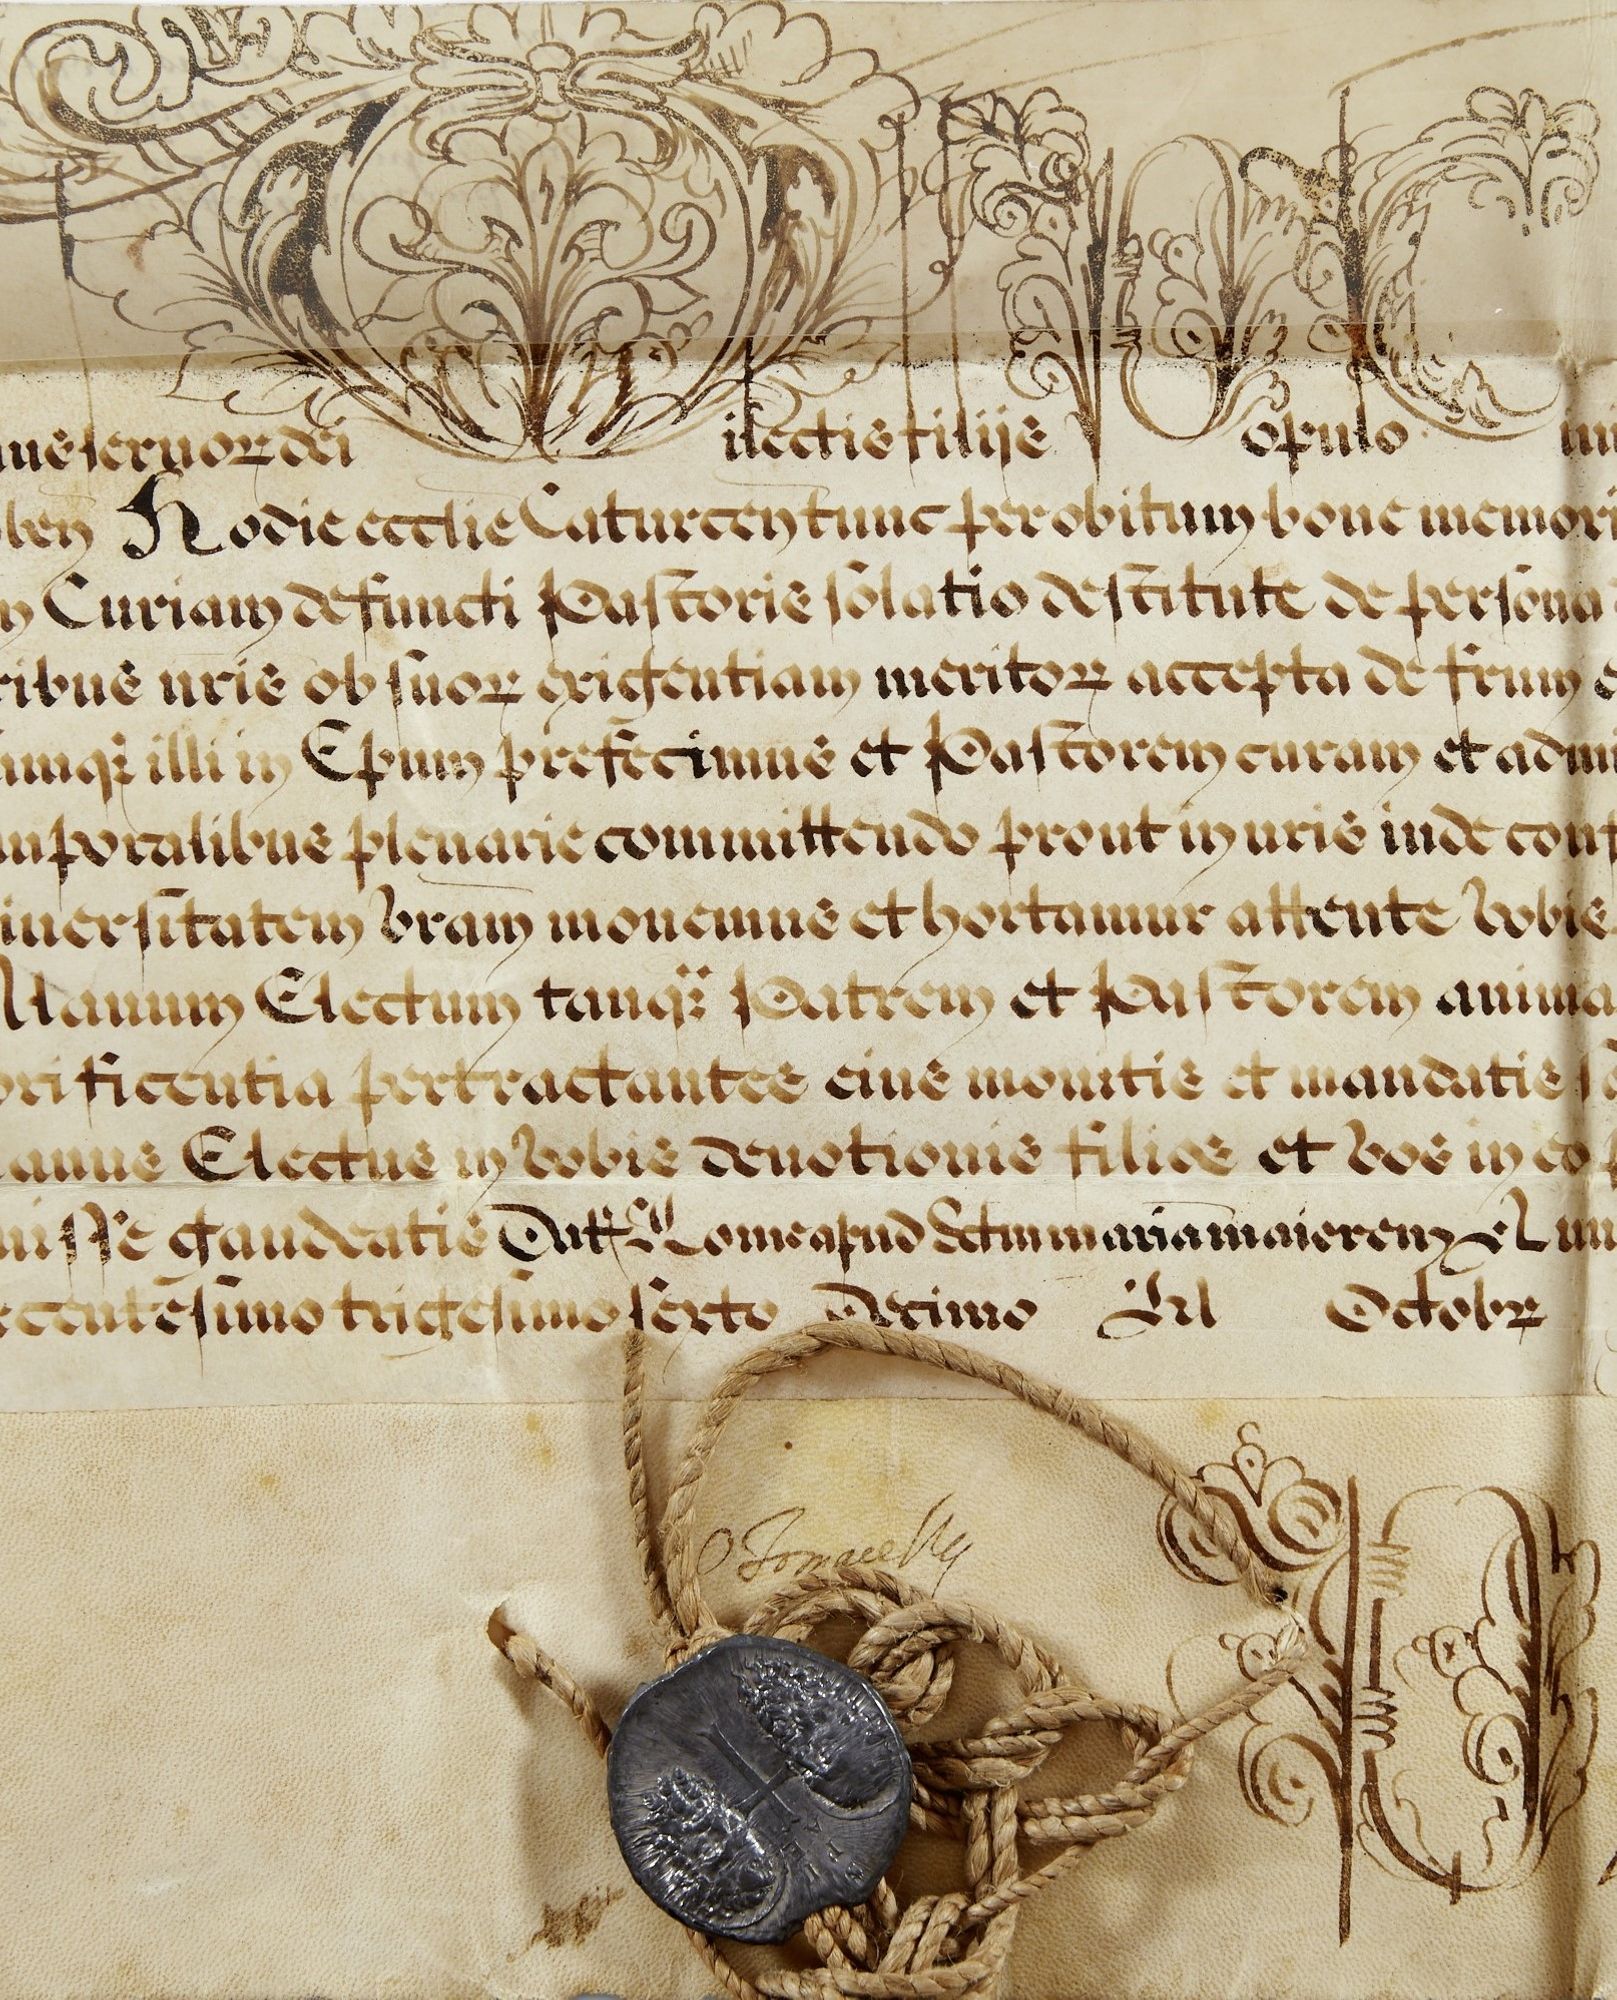 seruoꝝ dei ilectis filijs opulo
Hodie ecclie Caturcen tunc per obitum bone memori
Curiam defuncti Pastoris solatio destitute de persona
ribus nris ob suoꝝ exigentiam meritoꝝ accepta de frum
illi in Epum prefecimus et Pastorem curam et admi
mporalibus plenarie committendo prout in nris inde conf
iuersitatem vram mouemus et hortamur attente vobis
Alanum Electum tanqȝ Patrem et Pastorem anima
orificentia pertractantes eius monitis et mandatis
anus Electus in vobis deuotionis filios et vos in eo
uisse gaudeatis Dat Rome apud Sctam mariam maiorem
centesimo trigesimo sexto Decimo kl Octobꝝ
O Tomacelly